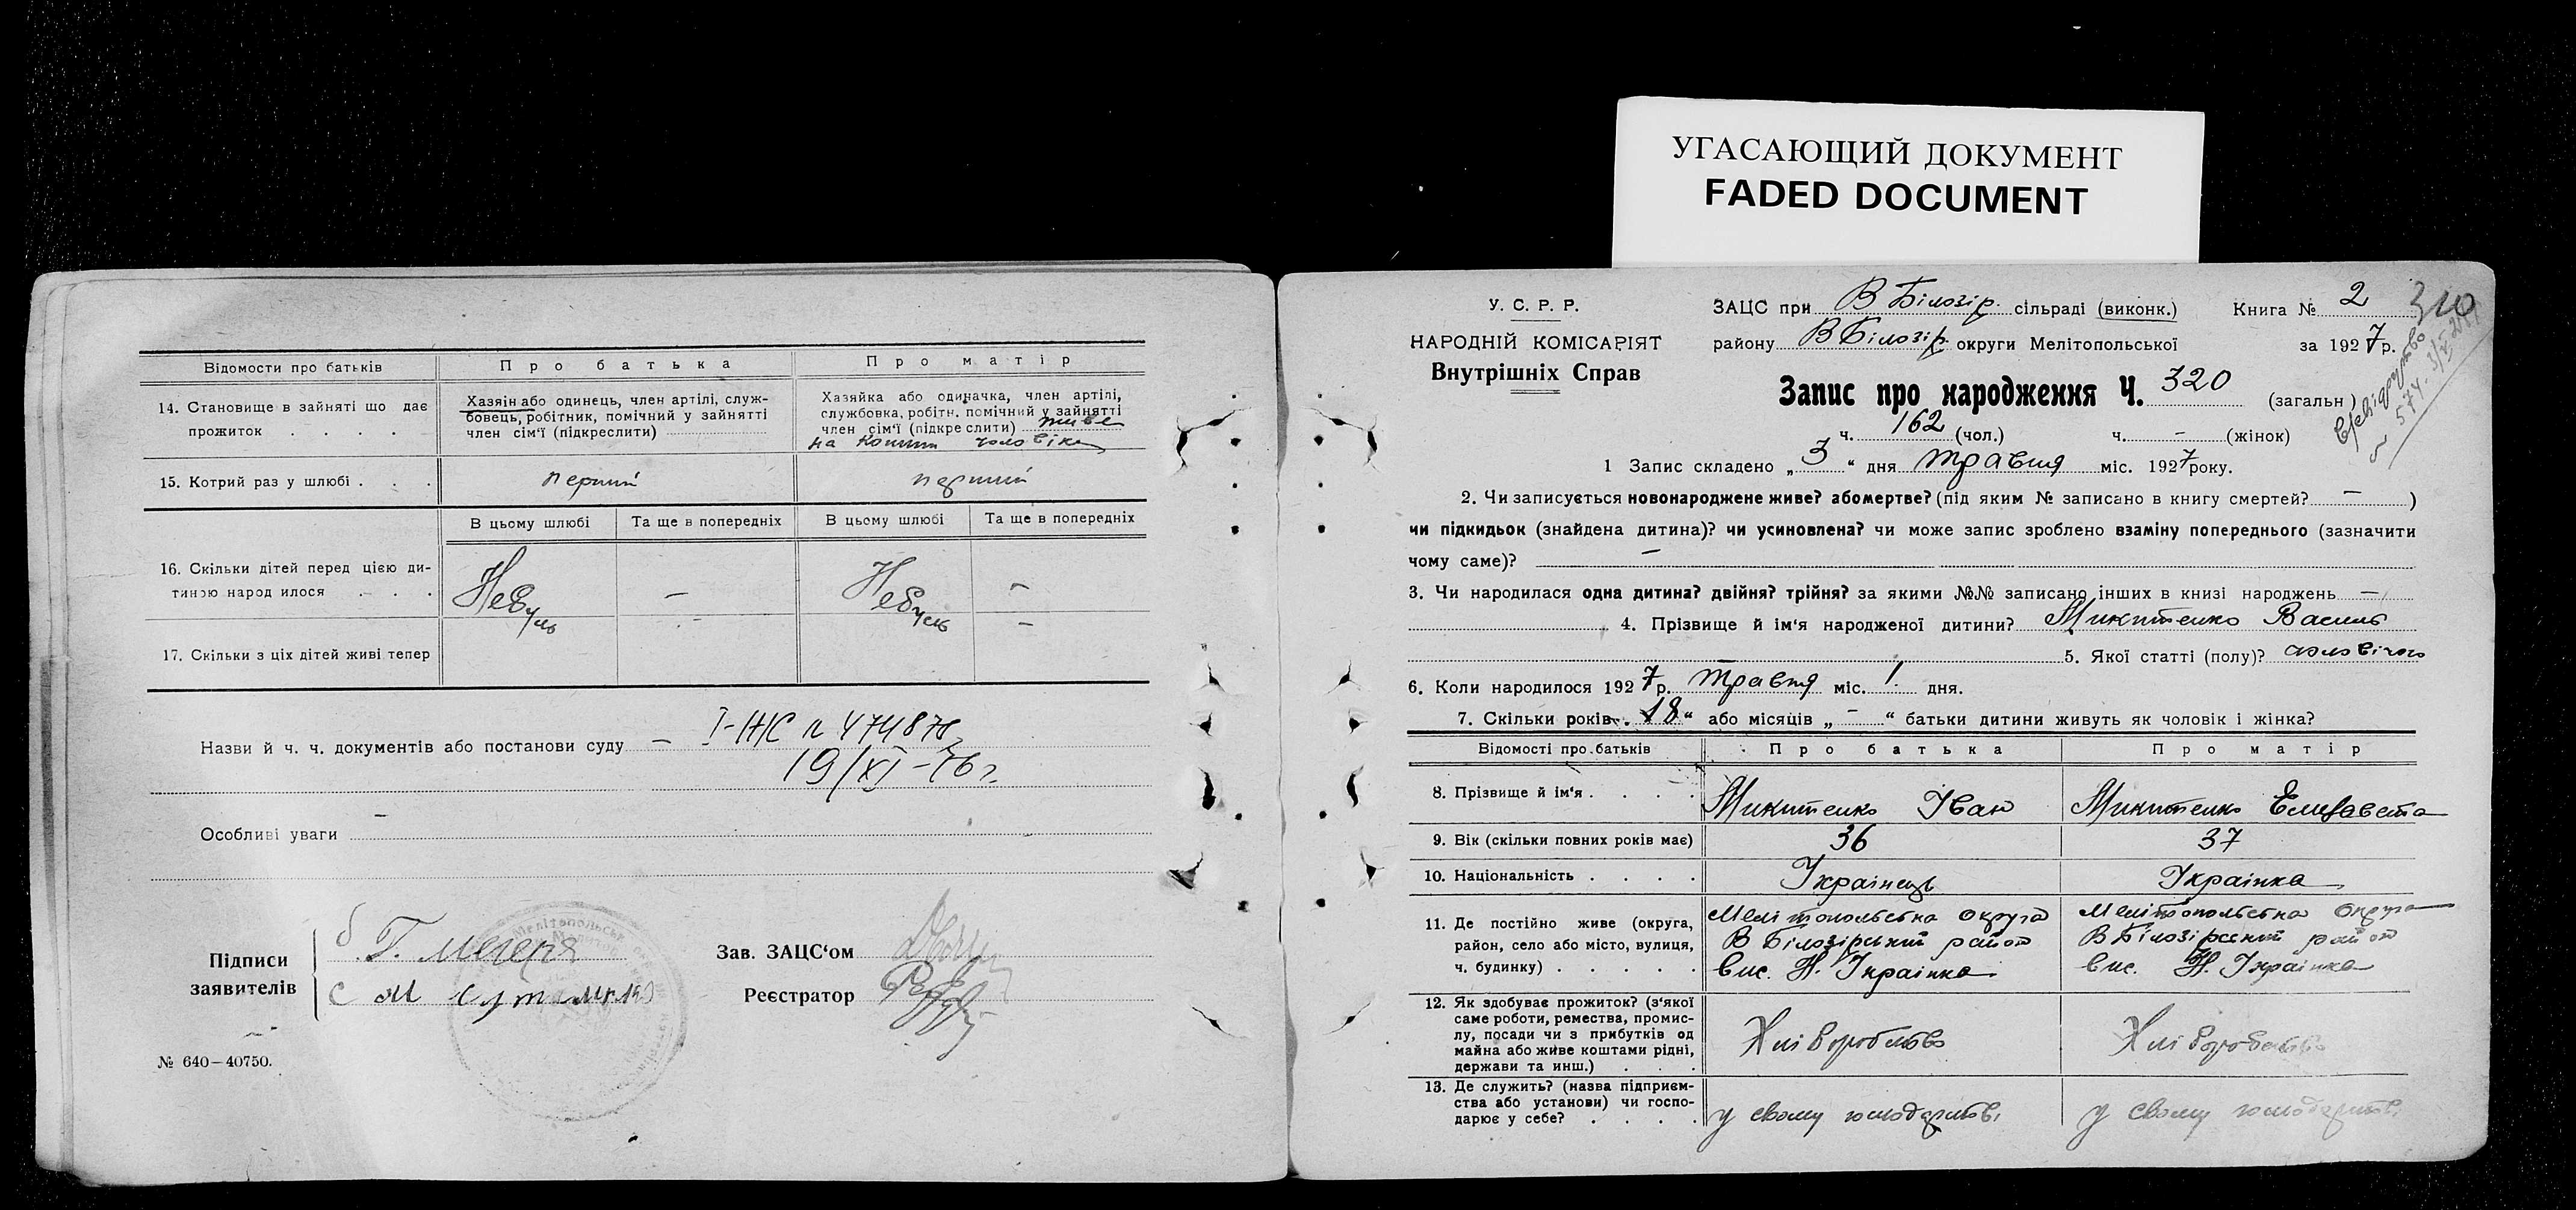 УГАСАЮЩИЙ ДОКУМЕНТ
FADED DOCUMENT
Відомости про батьків
Про батька
Про матір
14. Становище в зайняті що дає прожиток . . . .
Хазяін або одинець, член артілі, служ-
бовець, робітник, помічний у зайнятті
член сім'ї (підкреслити)
Хазяйка або одиначка, член артілі,
службовка, робітн. помічний у зайнятті
член сім'ї (підкреслити) живе
на кошти чоловіка
15. Котрий раз у шлюбі . . .
перший
перший
В цьому шлюбі
Та ще в попередніх
В цьому шлюбі
Та ще в попередніх
16. Скільки дітей перед цією ди-
тиною народилося . . .
–
–
17. Скільки з ціх дітей живі тепер
– –
Назви й ч. ч. документів або постанови суду – I-НЖ
19/XI-
Особливі уваги –
Підписи
заявителів
Г. Мегеря
Зав. ЗАЦС'ом
Реєстратор
№ 640—40750.
У. С. Р. Р.
НАРОДНІЙ КОМІСАРІЯТ
Внутрішніх Справ
ЗАЦС при В Білозір. сільраді (виконк.)
Книга № 2
310
району В Білозір. округи Мелітопольської
за 1927р.
Запис про народження Ч. 320 (загальн)
ч. 162 (чол.) ч. – (жінок)
1 Запис складено „ 3 “ дня травня міс. 1927року.
2. Чи записується новонароджене живе? або мертве? (під яким № записано в книгу смертей? – )
чи підкидьок (знайдена дитина)? чи усиновлена? чи може запис зроблено взаміну попереднього (зазначити
чому саме)? –
3. Чи народилася одна дитина? двійня? трійня? за якими №№ записано інших в книзі народжень –
4. Прізвище й ім'я народженої дитини? Микитенко Василь
5. Якої статті (полу)? чоловічого
6. Коли народилося 1927р. травня міс. 1 дня.
7. Скільки років 18 “ або місяців „ – “ батьки дитини живуть як чоловік і жінка?
Відомості про батьків
Про батька
Про матір
8. Прізвище й ім'я . . . .
Микитенко Іван
Микитенко Елизавета
9. Вік (скільки повних років має)
36
37
10. Національність . . . .
Українець
Українка
11. Де постійно живе (округа,
район, село або місто, вулиця,
ч. будинку) . . . . .
Мелітопольська округа
В Білозірський район
вис. Н. Українка
Мелітопольська округа
В Білозірский район
вис. Н. Українка
12. Як здобуває прожиток? (з'якої
саме роботи, ремества, промис-
лу, посади чи з прибутків од
майна або живе коштами рідні,
держави та инш.) . . .
Хліборобство
Хліборобство
13. Де служить? (назва підприєм-
ства або установи) чи госпо-
дарює у себе? . . . .
у свому господарстві
у свому господарстві